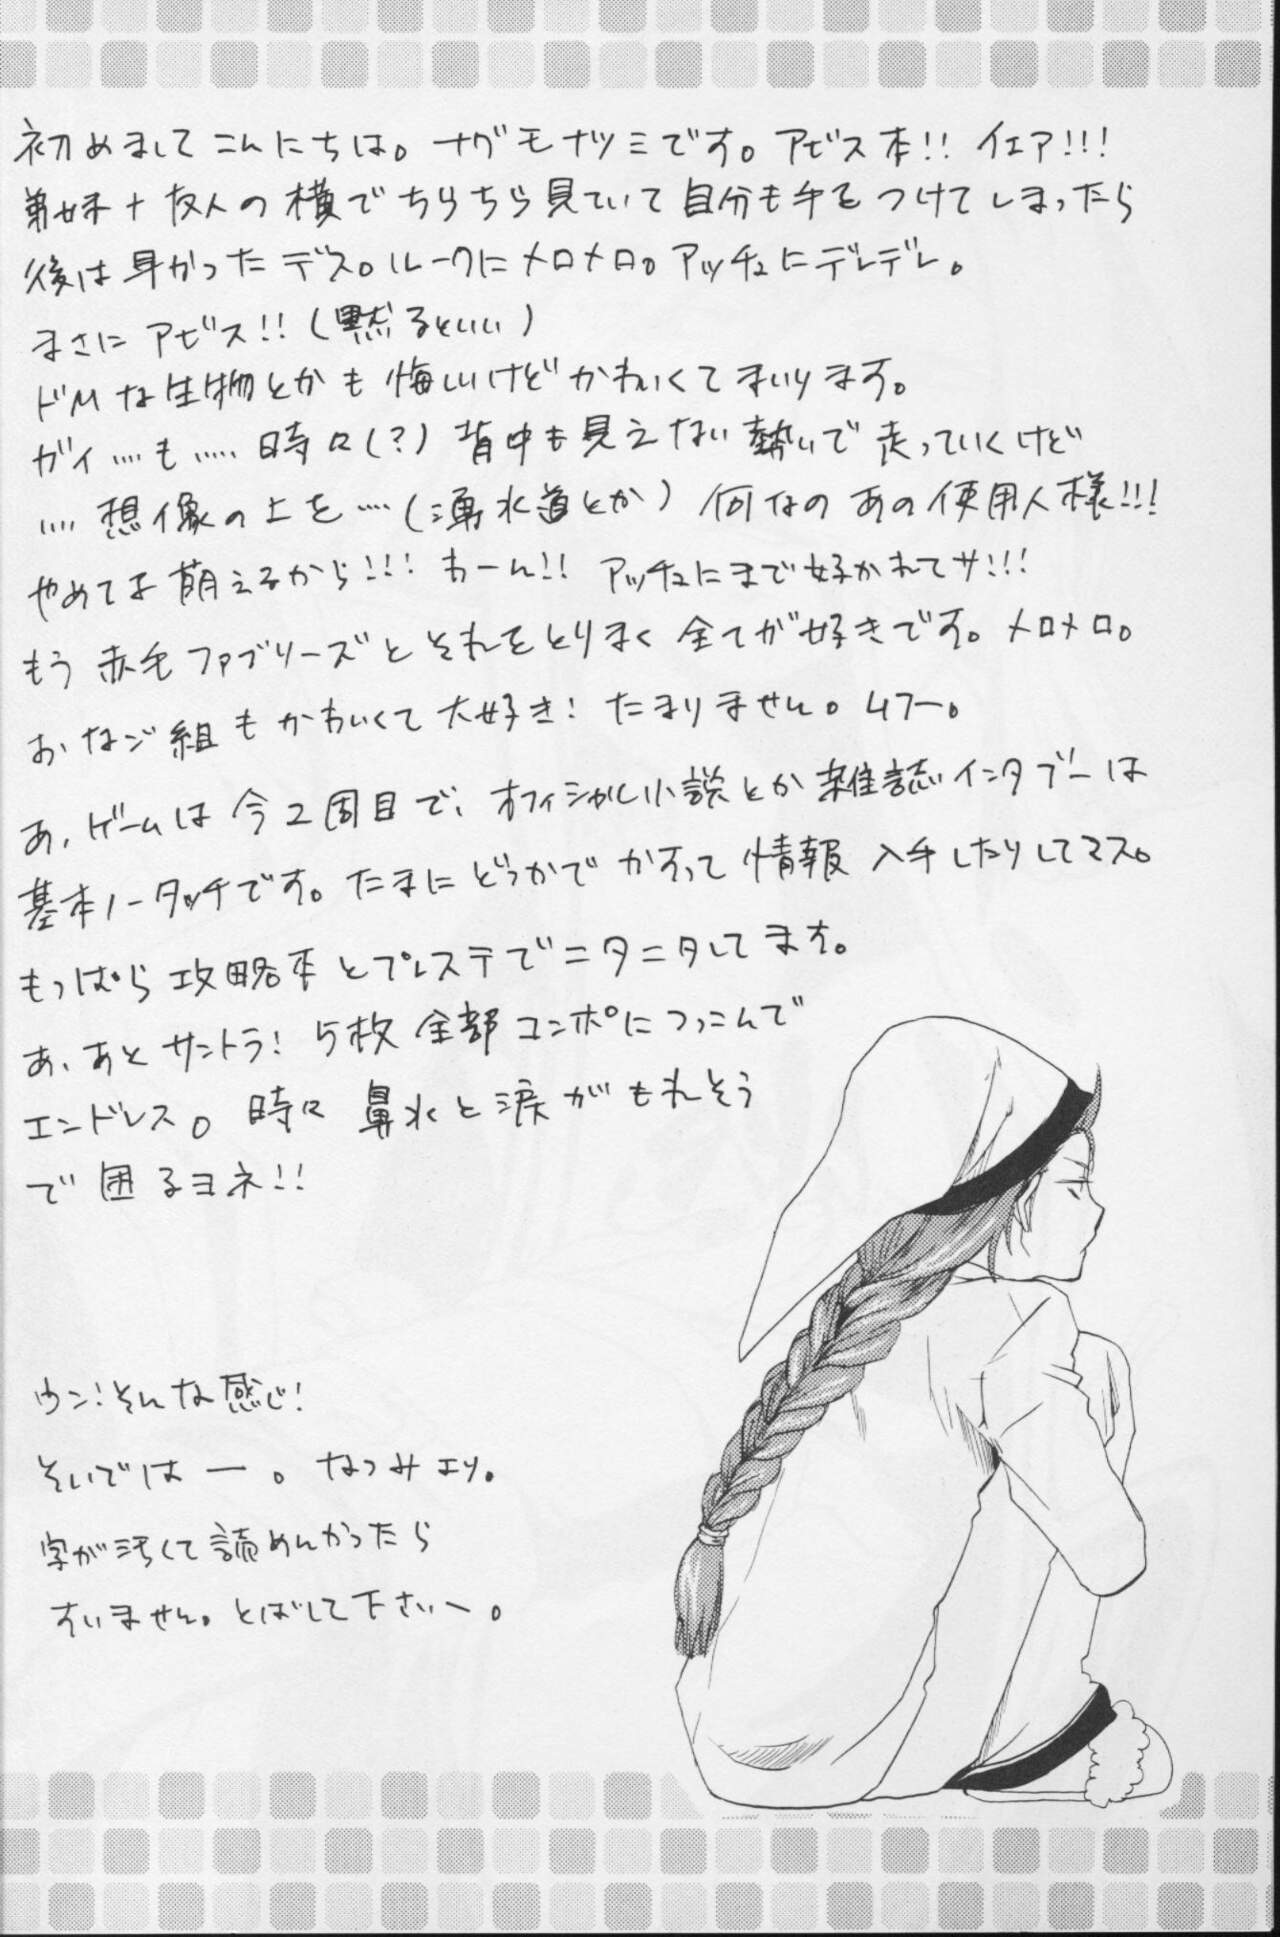 初めまして こんにちは。ナグモナツミです。アビス本!! イェア!!!
弟妹+友人の横でちらちら見ていて自分も手をつけてしまったら
後は早かったデス。ルークにメロメロ。アッチュにデレデレ。
まさにアビス!!(黙るといい)
ドMな生物とかも悔しいけどかわいくてまいります。
ガイ‥‥も‥‥‥時々(?)背中も見えない勢いで走っていくけど
‥‥想像の上を‥‥(湧水道とか)何なのあの使用人様!!!
やめてよ萌えるから!!!わーん!!アッチュにまで好かれてサ!!!
もう赤毛ファブリーズとそれをとりまく全てが好きです。メロメロ。
おなご組もかわいくて大好き!たまりません。ムフー。
あ、ゲームは今2周目で、オフィシャル小説とか雑誌インタブーは
基本ノータッチです。たまにどっかでかすって情報入手したりしてマス。
もっぱら攻略本とプレステでニタニタしてます。
あ、あとサントラ!5枚全部コンポにつっこんで
エンドレス。時々鼻水と涙がもれそう
で困るヨネ!!
ウン!そんな感じ!
そいではー。なつみより。
字が汚くて読めんかったら
すいません。とばして下さいー。